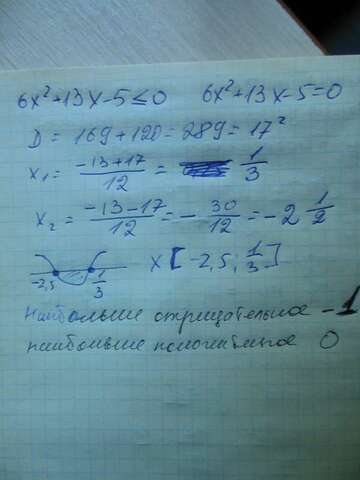 6x²+13x-5≤0   6x²+13x-5=0
D = 169+120=289=17²
x₁= (-13+17)/12 = 1/3
x₂= (-13-17)/12 = -30/12 = -2 1/2
-2,5   1/3   x [-2,5; 1/3]
Наибольшие отрицательное -1
наибольшие положительное 0